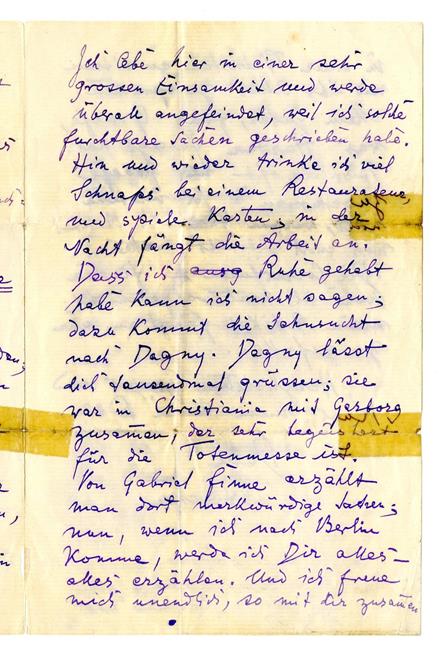 Ich lebe hier in einer sehr
grossen Einsamkeit und werde
überall angefeindet, weil ich solche
furchtbare Sachen geschrieben habe.
Hin und wieder trinke ich viel
Schnaps bei einem
und spiele Karten; in der
Nacht fängt die Arbeit an.
Dass ich Ruhe gehabt
habe kann ich nicht sagen;
dazu kommt die Sehnsucht
nach Dagny. Dagny lässt
dich tausendmal grüssen; sie
war in Christiania mit Garborg
zusamen, der sehr
für die Totenmesse ist.
Von Gabriel Finne erzählt
man dort merkwürdige Sachen;
nun, wenn ich nach Berlin
komme, werde ich Dir alles—
alles erzählen. Und ich freue
mich unendlich, so mit dir zusamen